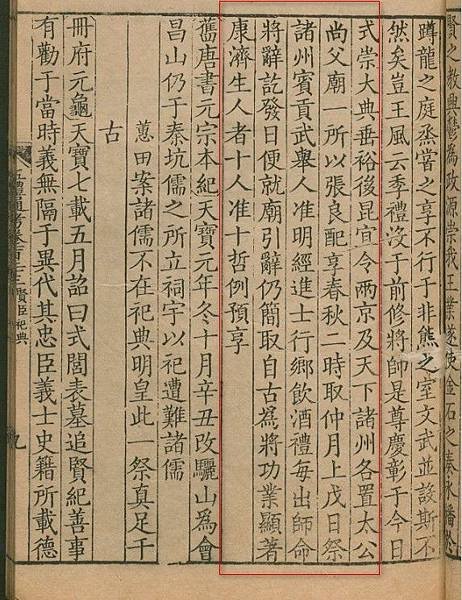 賢之教興鬱為政源我王業遂使金石之奏永播
蹲龍之庭烝嘗之享不行于非熊之室文武並設斯不
然矣豈王風云季禮沒于前修將帥是尊慶彰于今日
式崇大典垂裕後昆宜令兩京及天下諸州各置太公
尚父廟一所以張良配享春秋二時取仲月上戊日祭
諸州賓貢武舉人准明經進士行鄉飲酒禮每出師命
將辭訖發日便就廟引辭仍簡取自古為將功業顯著
康濟生人者十人准十哲例預享
舊唐書元宗本紀天寶元年冬十月辛丑改驪山為會
昌山仍于秦坑儒之所立祠宇以祀遭難諸儒
蕙田案諸儒不在祀典明皇此一祭真足千
古
冊府元龜天寶七載五月詔曰式閭表墓追賢紀善事
有勸于當時義無隔于異代其忠臣義士史籍所載德
五禮通考卷 賢臣祀典 九